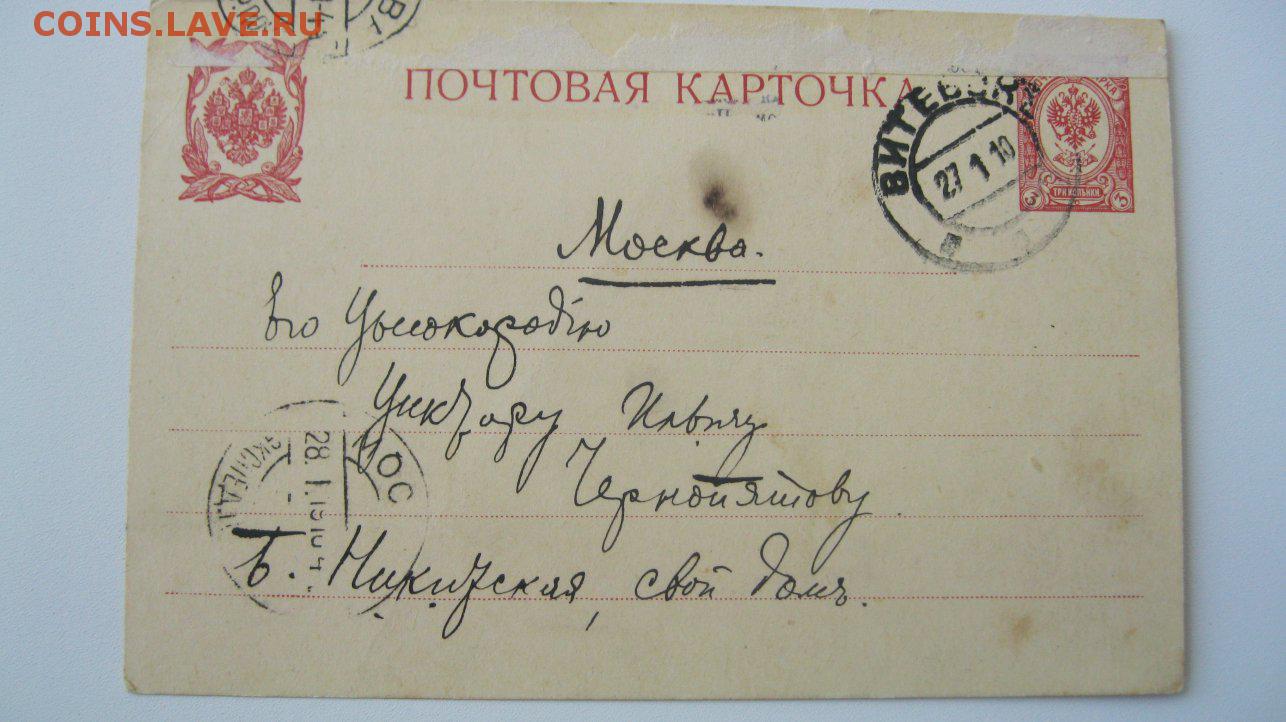 COINS.LAVE.RU
ПОЧТОВАЯ КАРТОЧКА
ВИТЕБСК
27 1 10
ТРИ КОПѢЙКИ
3 3
Москва.
Его Высокородію
Виктору Ильичу
Чернопятову.
Б. Никитская, свой домъ.
МОС
28.1.1910
ЭКСПЕД.